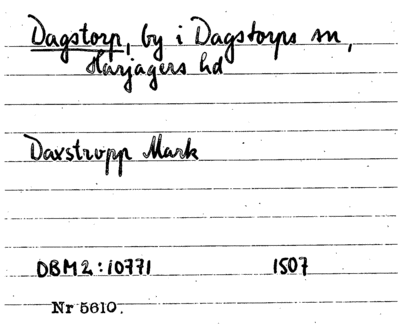 Dagstorp, by i Dagstorps sn,
Harjagers hd
Daxstropp Mark
DBM2:10771 1507
Nr 5610.